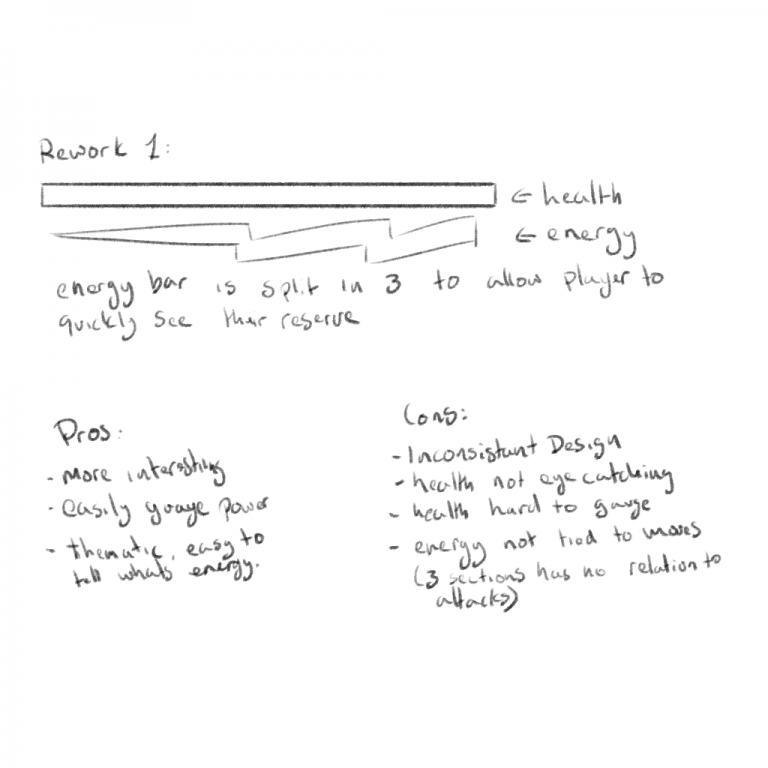 Rework 1:
← health
← energy
energy bar is split in 3 to allow player to
quickly see their reserve
Pros:
- more interesting
- easily guage power
- thematic, easy to
tell whats energy.
Cons:
- Inconsistant Design
- health not eye catching
- health hard to gauge
- energy not tied to moves
(3 sections has no relation to
attacks)